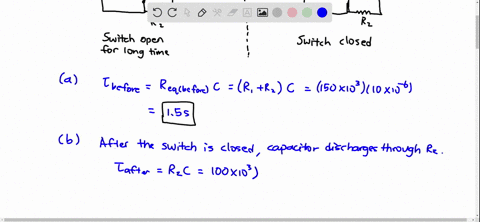 R₂ R₂
Switch open
for long time
Switch closed
(a) τbefore = Req(before) C = (R₁+R₂) C = (150×10³)(10×10⁻⁶)
= 1.5s
(b) After the switch is closed, capacitor discharges through R₂.
τafter = R₂C = 100×10³)